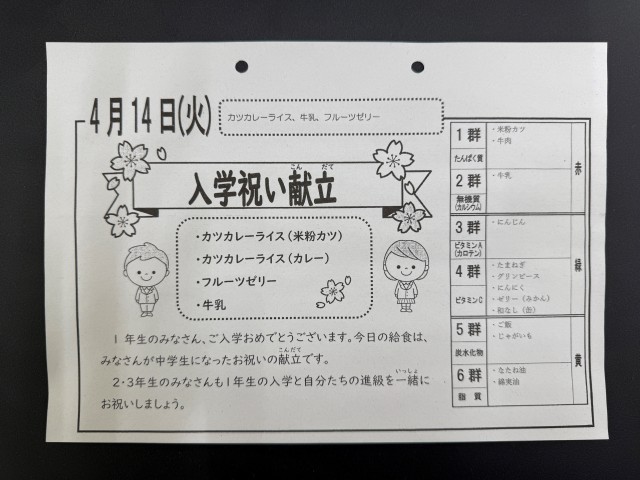 4月14日(火)
カツカレーライス、牛乳、フルーツゼリー
こん だて
入学祝い献立
・カツカレーライス(米粉カツ)
・カツカレーライス(カレー)
・フルーツゼリー
・牛乳
1年生のみなさん、ご入学おめでとうございます。今日の給食は、
こんだて
みなさんが中学生になったお祝いの献立です。
いっしょ
2・3年生のみなさんも1年生の入学と自分たちの進級を一緒に
お祝いしましょう。
1群
たんぱく質
・米粉カツ
・牛肉
2群
無機質
(カルシウム)
・牛乳
赤
3群
ビタミンA
(カロテン)
・にんじん
4群
ビタミンC
・たまねぎ
・グリンピース
・にんにく
・ゼリー(みかん)
・和なし(缶)
緑
5群
炭水化物
・ご飯
・じゃがいも
6群
脂質
・なたね油
・綿実油
黄